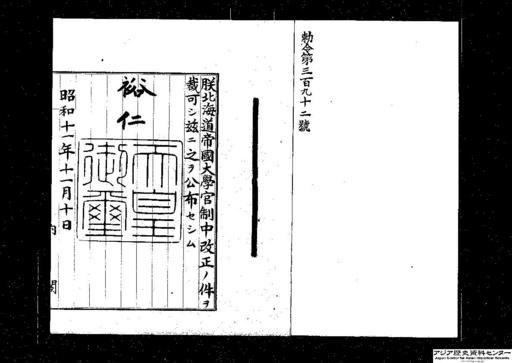 勅令第三百九十二號
朕北海道帝國大學官制中改正ノ件ヲ
裁可シ茲ニ之ヲ公布セシム
裕仁
天皇
御璽
昭和十一年十一月十日
内閣
アジア歴史資料センター
Japan Center for Asian Historical Records